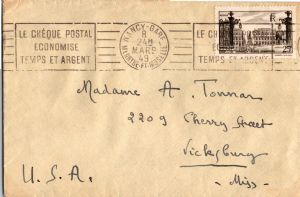 LE CHÈQUE POSTAL
ÉCONOMISE
TEMPS ET ARGENT
NANCY-GARE
8
24H
MARS
49
MEURTHE-ET-MOSELLE
LE CH
ÉCO
TEMPS ET ARGENT
Madame A. Tonnar
2209 Cherry Street
Vicksburg
U.S.A. Miss-